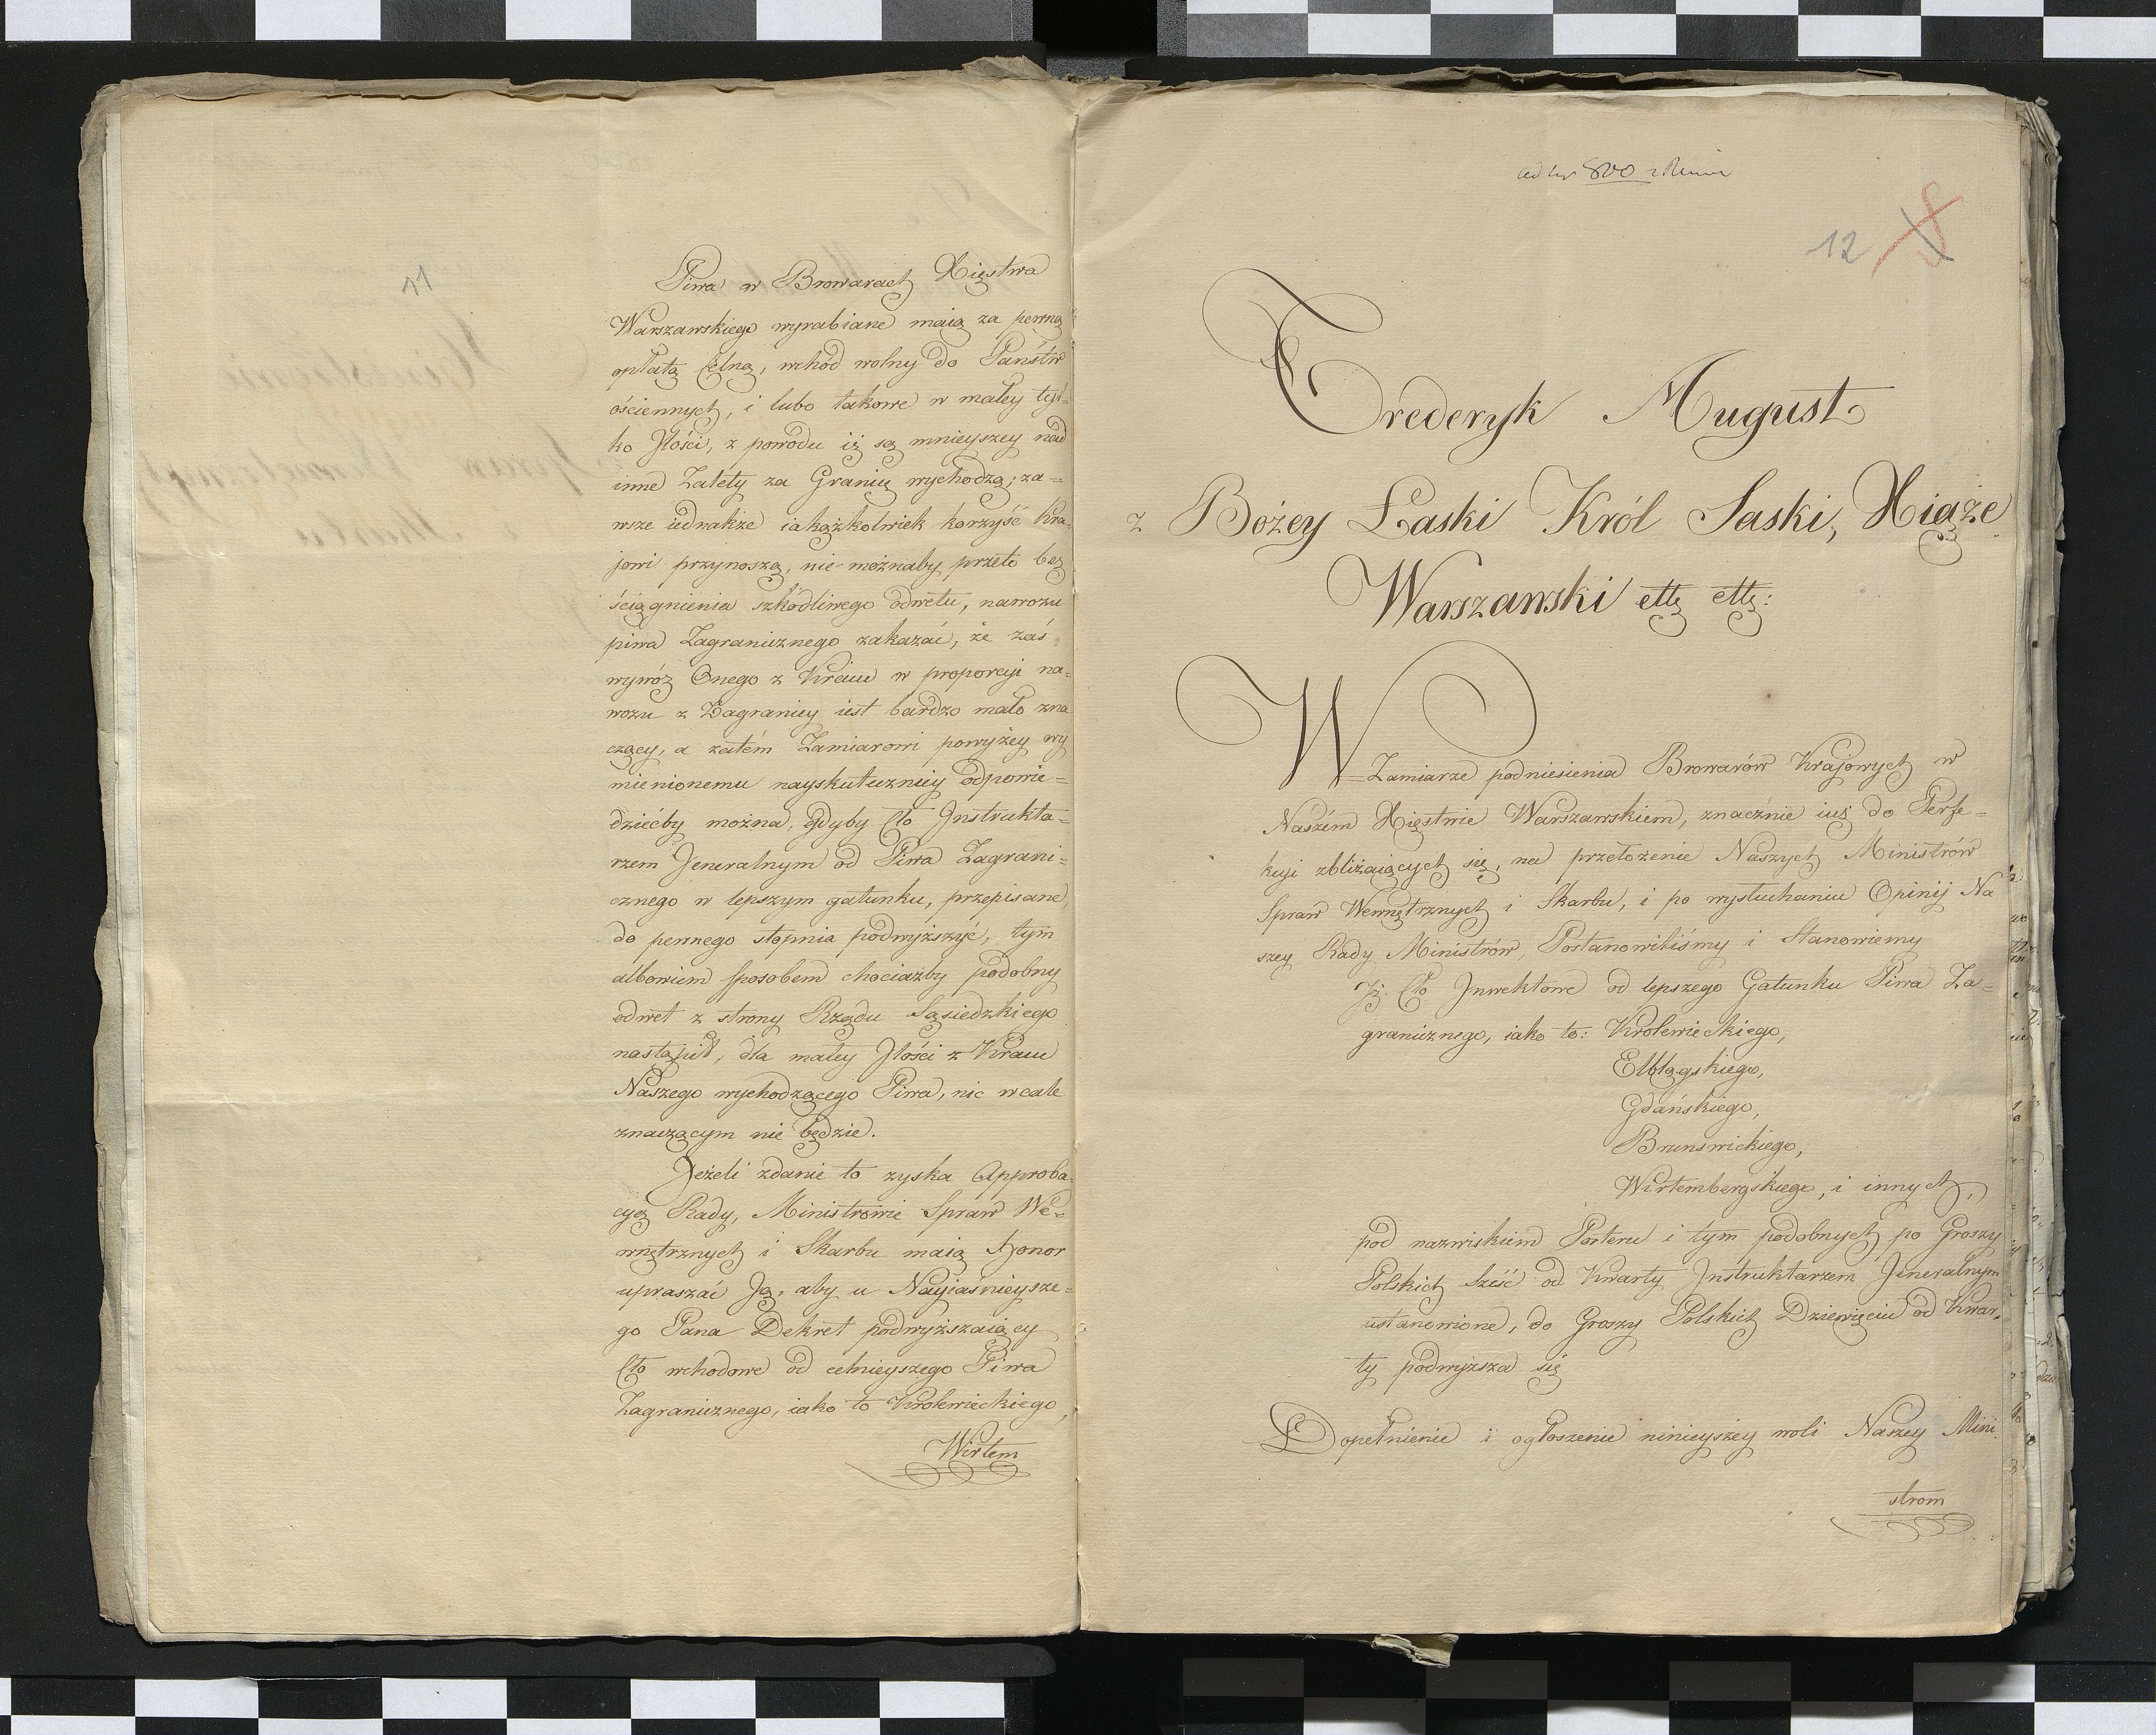 11
Piwa w Browarach Xięstwa
Warszawskiego wyrabiane maią za pewną
opłatą Celną, wchód wolny do Państw
ościennych, i lubo takowe w małey tyl-
ko Jłości, z powodu iż są mnieyszey nad
inne Zalety za Granicę wychodzą; za=
wsze iednakże iakążkolwiek korzyść Kra-
jowi przynoszą, nie możnaby przeto bez
ściągnienia szkodliwego odwetu, nawozu
piwa Zagranicznego zakazać, że zaś
wywóz Onego z Kraiu w proporcyi na=
wozu z Zagranicy iest bardzo mało zna
czący, a zatém Zamiarowi powyżey wy
mienionemu nayskuteczniey odpowie=
dziećby można, gdyby Cło Jnstrukta=
rzem Jeneralnym od Piwa Zagrani=
cznego w lepszym gatunku, przepisane,
do pewnego stopnia podwyższyć, tym
albowiem sposobem chociażby podobny
odwet z strony Rządu Sąsiedzkiego
nastąpił, dla małey Jłości z Kraiu
Naszego wychodzącego Piwa, nic wcale
znaczącym nie będzie.
Jeżeli zdanie to zyska Approba-
cyą Rady, Ministrowie Spraw We=
wnętrznych i Skarbu maią honor
upraszać Ją, aby u Nayiaśnieysze=
go Pana Dekret podwyższaiący
Cło wchodowe od celnieyszego Piwa
Zagranicznego, iako to Królewieckiego,
Wirtem
800
12
Frederyk August
z Bożey Łaski Król Saski, Xiąże
Warszawski ettz ettz:
W Zamiarze podniesienia Browarów Krajowych w
Naszém Xięstwie Warszawskiem, znacznie iuż do Perfe=
kcyi zbliżaiących się, na przełożenie Naszych Ministrów
Spraw Wewnętrznych i Skarbu, i po wysłuchaniu Opinij Na
szey Rady Ministrów, Postanowiliśmy i Stanowiemy
Jż Cło Jnwektowe od lepszego Gatunku Piwa Za=
granicznego, iako to: Królewieckiego,
Elblągskiego,
Gdańskiego,
Brunswickiego,
Wirtembergskiego, i innych,
pod nazwiskiem Porteru i tym podobnych po Groszy
Polskich Sześć od Kwarty Jnstruktarzem Jeneralnym
ustanowione, do Groszy Polskich Dziewięciu od Kwar-
ty podwyższa się
Dopełnienie i ogłoszenie ninieyszey woli Naszey Mini
strom